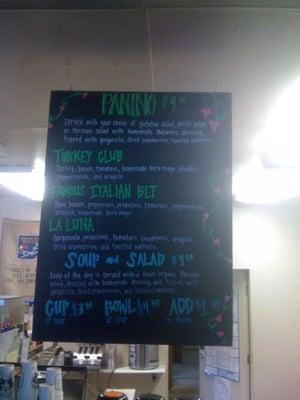 PANINO $9.
Served with your choice of potato salad, pasta salad
or Parisian salad with homemade Balsamic dressing,
topped with gorgonzola, dried cranberries, toasted walnuts.
TURKEY CLUB
Turkey, bacon, tomatoes, homemade herb mayo, cheddar,
pepperoncini, and arugula
FAMOUS ITALIAN BLT
Ham, bacon, pepperoni, provolone, tomatoes, pepperoncini,
arugula, homemade herb mayo.
LA LUNA
Gorgonzola, provolone, tomatoes, cucumbers, arugula,
dried cranberries, and toasted walnuts.
SOUP and SALAD $9.50
Soup of the day is served with a fresh organic Parisian
salad, dressed with homemade dressing, and topped with
gorgonzola, dried cranberries, and toasted walnuts.
CUP $3. BOWL $4.50 ADD $1.
of soup of soup to panino